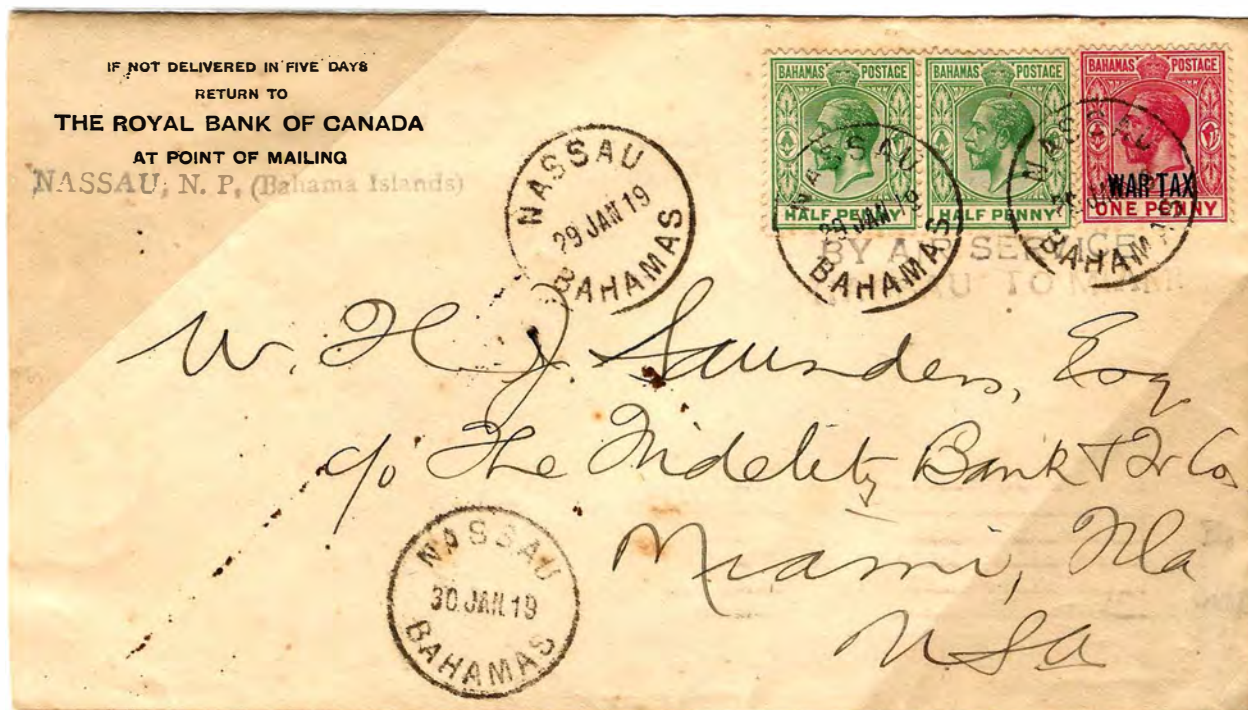 IF NOT DELIVERED IN FIVE DAYS
RETURN TO
THE ROYAL BANK OF CANADA
AT POINT OF MAILING
NASSAU, N. P. (Bahama Islands)
BAHAMAS POSTAGE
HALF PENNY
BAHAMAS POSTAGE
HALF PENNY
BAHAMAS POSTAGE
WAR TAX
ONE PENNY
NASSAU
29 JAN 19
BAHAMAS
NASSAU
29 JAN 19
BAHAMAS
NASSAU
BAHAMAS
BY AIR SERVICE
TO
W. H. J. Saunders, Esq
c/o The Fidelity Bank & Tr Co
Miami, Fla
USA
NASSAU
30 JAN 19
BAHAMAS